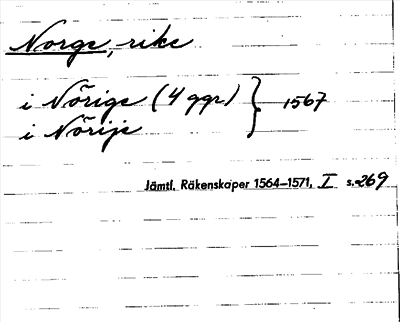 Norge, rike
i Nörige (4 ggr) } 1567
i Nörije
Jämtl. Räkenskaper 1564–1571, I s. 269